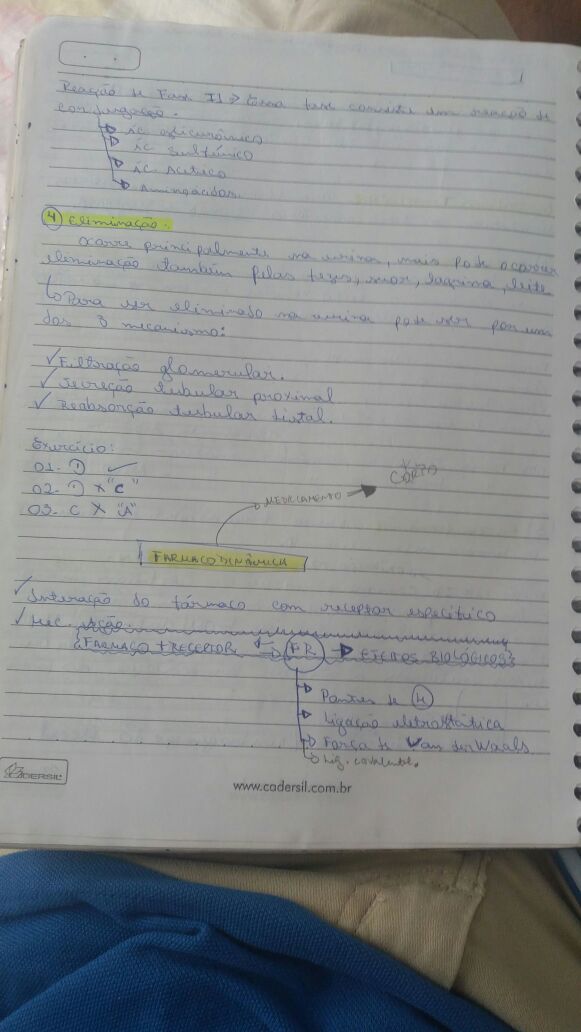 Reação de Fase II → Essa fase consiste em reação de
conjugação.
→ Ác glicurônico
→ Ác Sulfúrico
→ Ác Acético
→ Aminoácidos.
④ Eliminação.
Ocorre principalmente na urina, mais pode ocorrer
eliminação também pelas fezes, suor, lagrima, leite
↳ Para ser eliminado na urina pode ser por um
dos 3 mecanismo:
✓ Filtração glomerular.
✓ Secreção tubular proximal
✓ Reabsorção tubular distal.
Exercício:
01- D ✓
02- D X "C"
03- C X "A"
MEDICAMENTO → CORPO
FARMACODINÂMICA
✓ Interação do fármaco com receptor específico
✓ Mec. Ação.
FARMACO + RECEPTOR ⇄ FR → EFEITOS BIOLÓGICOS
→ Pontes de H
→ Ligação eletrostática
→ Força de Van der Waals
→ Lig. covalente.
CADERSIL
www.cadersil.com.br